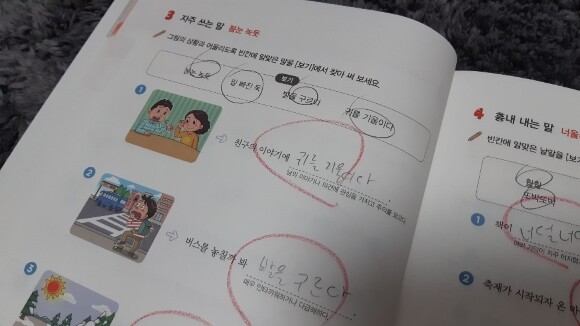 3 자주 쓰는 말 불눈 녹듯
그림의 상황과 어울리도록 빈칸에 알맞은 말을 [보기]에서 찾아 써 보세요.
보기
봄눈 녹듯 김 빠진 듯 발을 구르다 귀를 기울이다
1
친구의 이야기에 귀를 기울이다.
남의 이야기나 의견에 관심을 가지고 주의를 모으다.
2
버스를 놓칠까 봐 발을 구른다.
매우 안타까워하거나 다급해하다.
3
4 흉내 내는 말 너울
빈칸에 알맞은 낱말을 [보기
훨훨
1 책이 너덜너
2 축제가 시작되자 온